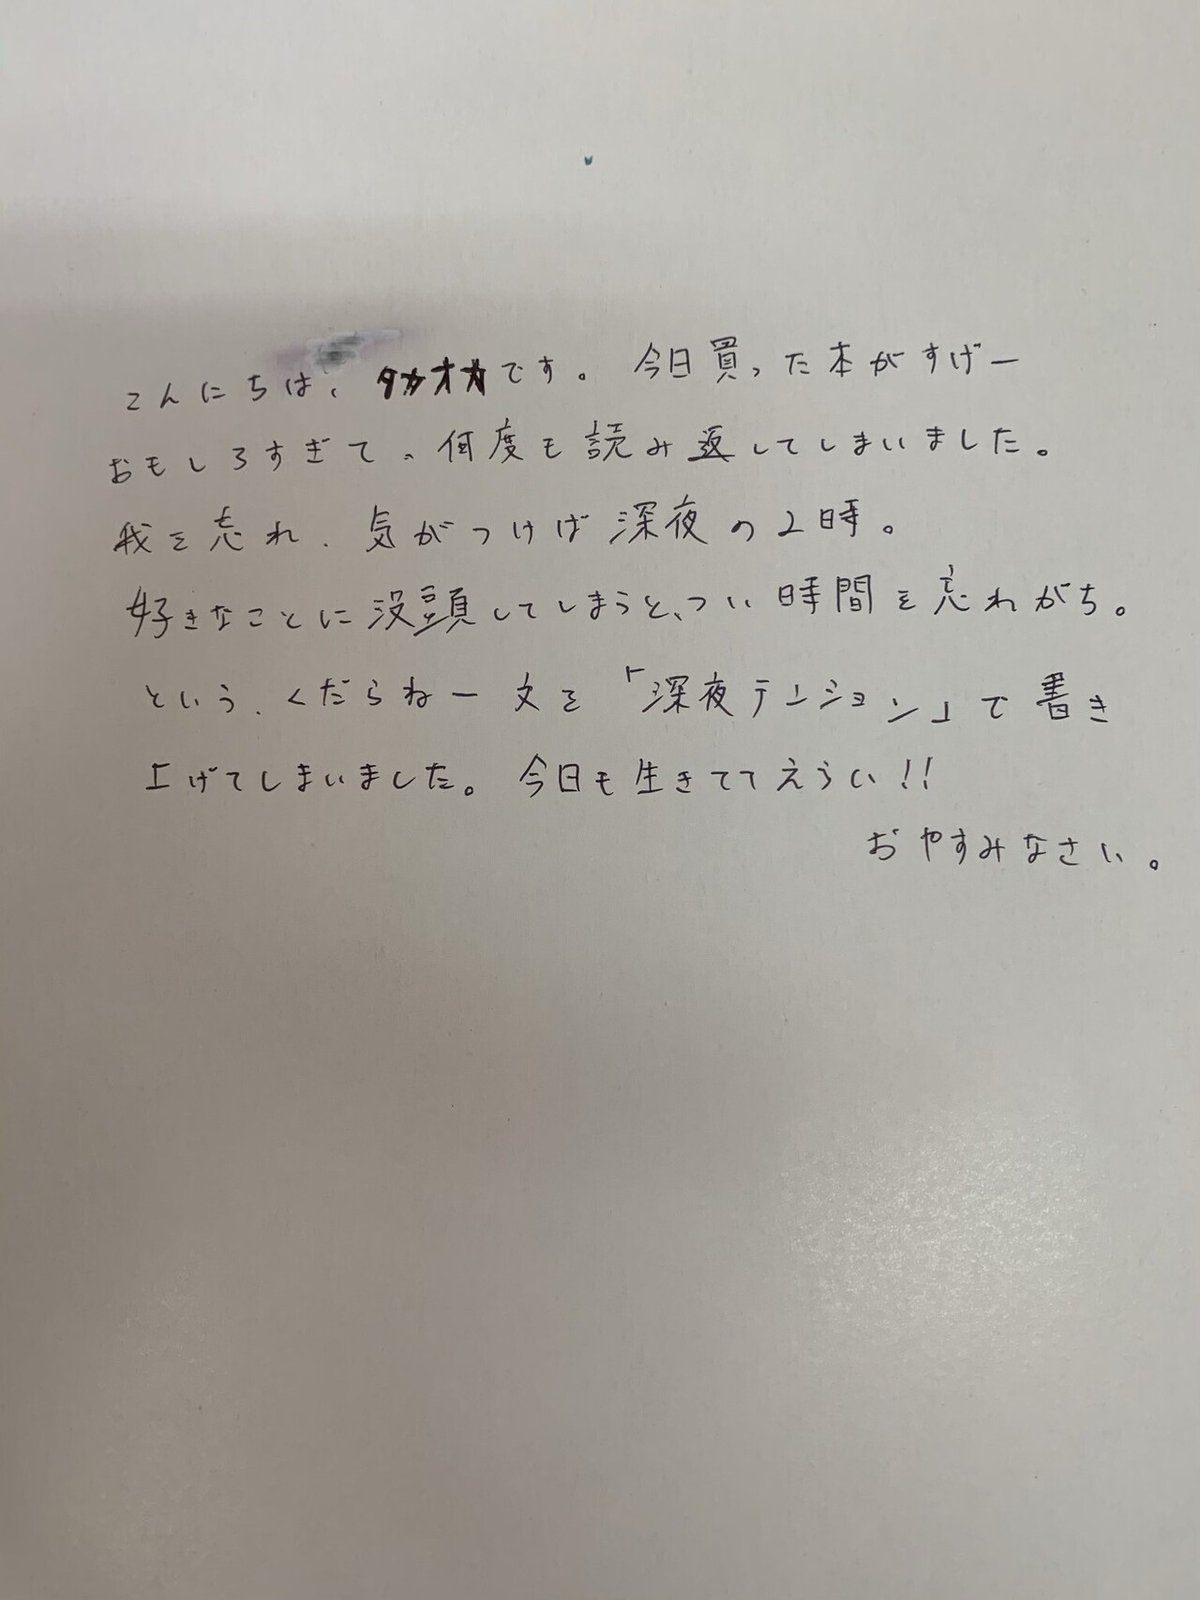 こんにちは、タカオカです。今日買った本がすげー
おもしろすぎて、何度も読み返してしまいました。
我を忘れ、気がつけば深夜の2時。
好きなことに没頭してしまうと、つい時間を忘れがち。
という、くだらねー文を「深夜テンション」で書き
上げてしまいました。今日も生きててえらい!!
おやすみなさい。